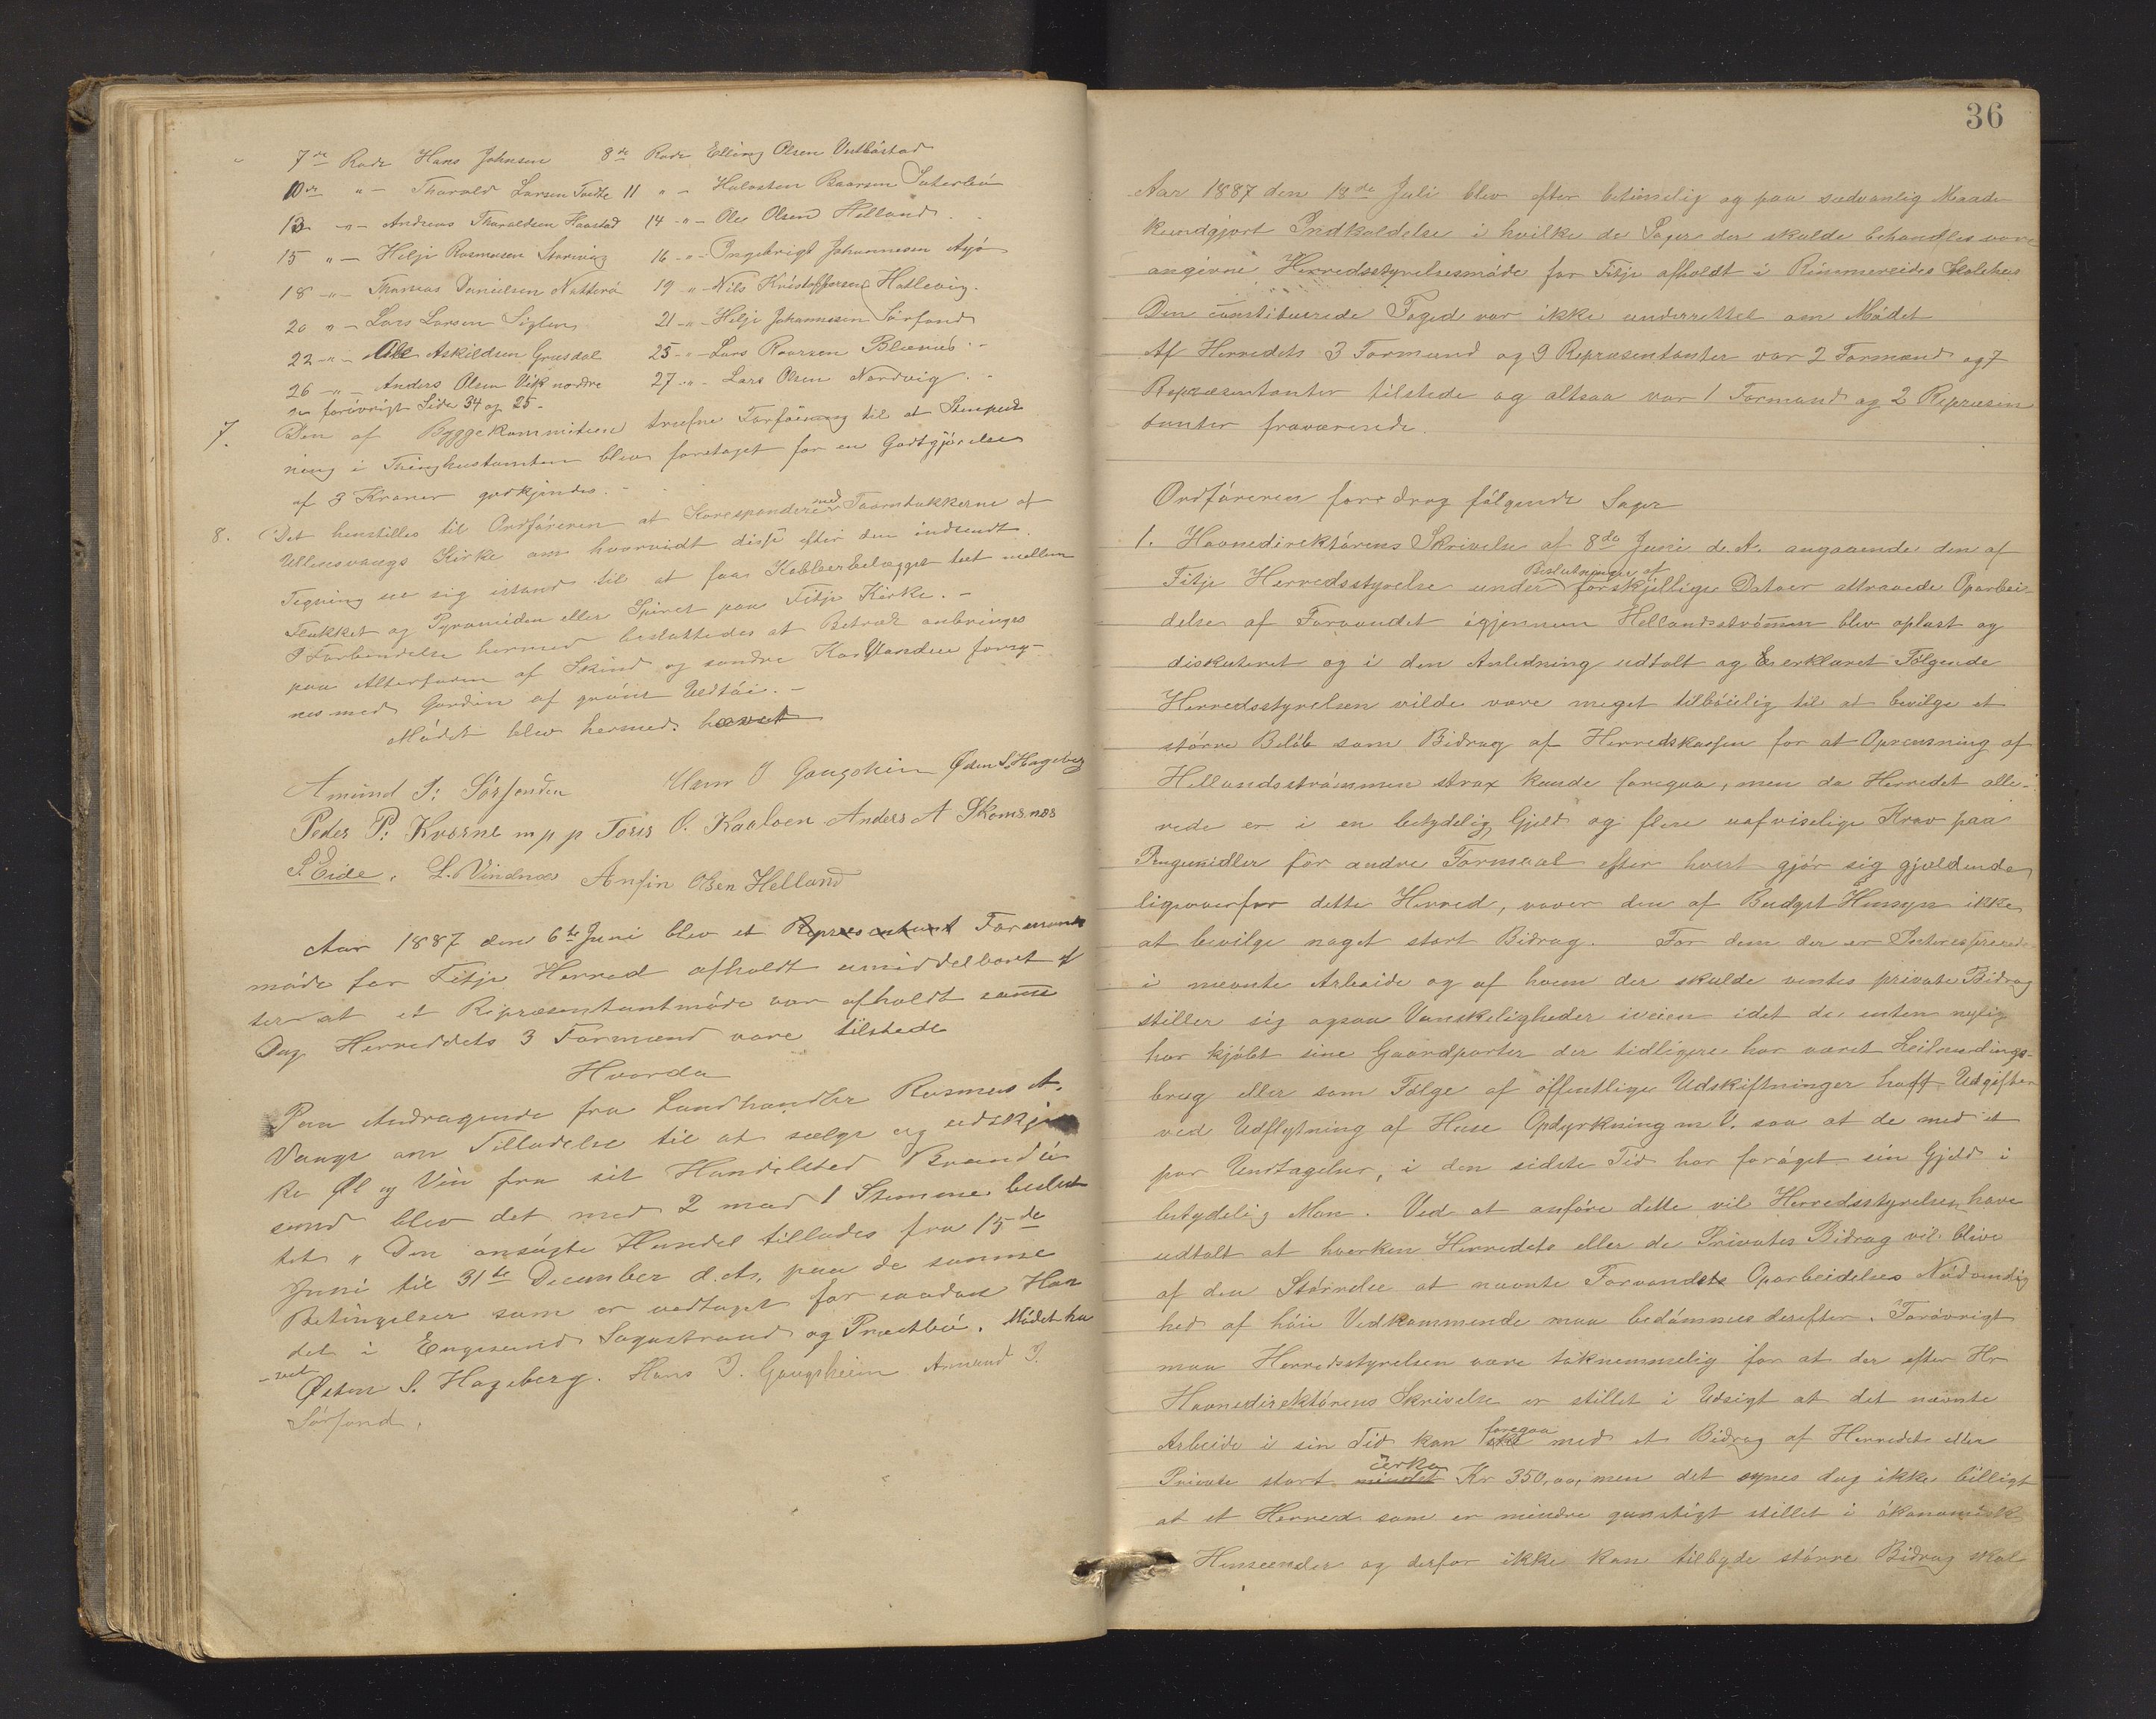 7de Rode Hans Johnsen 8de Rode Elling Olsen Vestbøstad
10de " - Tharald Larsen Tvedte 11 " - Halvsten Baarsen Sæterbø
13 - " - Andreas Tharaldsen Haastad 14 - " - Ole Olsen Helland.
15 " - Helje Rasmusen Storevig 16 - " - Ingebrigt Johannesen Agdø
18 - " - Thomas Danielsen Natterø 19 - " - Nils Kristoffersen Hatlevig.
20 " - Lars Larsen Sigten 21 - " - Helje Johannesen Sørfond
22 - " - Ole Askildsen Grøsdal 25 - " - Lars Roarsen Blænes. -
26 - " - Anders Olsen Vik nordre 27 - " - Lars Olsen Nordvig. -
se forøvrigt Side 34 og 25. -
7. Den af Byggekommiteen trufne Forføining til at Stenpud
ning i Thinghustomten blev foretaget for en Godtgjørelse
af 3 Kroner godkjendes. -
8. Det henstilles til Ordføreren at Korespondere med Taarntækkerne af
Ullensvangs Kirke om hvorvidt disse efter den indsendt
Tegning ser sig istand til at faa Kobberbelægget tæt mellem
Flækket og Pyramiden eller Spiret paa Fitje Kirke. -
I Forbindelse hermed besluttedes at Betræk anbringes
paa Alterfoden af Skind og søndre Korglanden forsy-
nes med Gardin af grønt Uldtøi. -
Mødet blev hermed hævet
Amund J: Sørfonden Hans J Gaugshein Østen S. Hageberg
Peder P: Kværne m p p Toris O. Kaaloen Anders A Skomsnæs
S. Eide. L. Vindnæs Anfin Olsen Helland
Aar 1887 den 6te Juni blev et Repræsentant Formands
møde for Fitje Herred afholdt umiddelbart ef
ter at et Repræsentantmøde var afholdt samme
Dag Herreddets 3 Formænd vare tilstede
Hvorda
Paa Andragende fra Landhandler Rasmus A.
Vaage om Tilladelse til at sælge og udskjæn
ke Øl og Vin fra sit Handelsted Brandø
sund blev det med 2 mod 1 Stemme beslut
tet " Den ansøgte Handel tillades fra 15de
Juni til 31te December d. A, paa de samme
Betingelser som er vedtaget for saadan Han
del i Engesund Sagastrand og Præstbø. Mødet hæ
- vet
Østen S. Hageberg. Hans J. Gaugshein Amund J.
Sørfond.
36
Aar 1887 den 18de Juli blev efter betimelig og paa sædvanlig Maade
kundgjort Indkaldelse i hvilke de Sager der skulde behandles vare
angivne Herredsstyrelsesmøde for Fitje afholdt i Rimmereides Skolehus
Den constituerede Foged var ikke underrettet om Mødet
Af Herredets 3 Formænd og 9 Repræsentanter var 2 Formænd og 7
Repræsentanter tilstede og altsaa var 1 Formand og 2 Repræsen
tanter fraværende.
Ordføreren foredrog følgende Sager
1. Havnedirektørens Skrivelse af 8de Juni d. A. angaaende den af
Fitje Herredsstyrelse under Beslutninger af forskjellige Datoer attraaede Oparbei-
delse af Farvandet igjennem Hellandsstrømmen blev oplæst og
diskuteret og i den Anledning udtalt og erklæret Følgende
Herredsstyrelsen vilde være meget tilbøielig til at bevilge et
større Beløb som Bidrag af Herredskassen for at Oprensning af
Hellandsstrømmen strax kunde foregaa, men da Herredet alle-
rede er i en betydelig Gjeld og flere uafviselige Krav paa
Pengemidler for andre Formaal efter hvert gjør sig gjeldende
ligeoverfor dette Herred, vover den af Budget Hensyn ikke
at bevilge noget stort Bidrag. For dem der er Interesserede
i nævnte Arbeide og af hvem der skulde ventes private Bidrag
stiller sig ogsaa Vanskeligheder iveien idet de enten nylig
har kjøbt sine Gaardparter der tidligere har været Leilændings-
brug eller som Følge af offentlige Udskiftninger haft Udgifter
ved Udflytning af Huse Opdyrkning m V. saa at de med et
par Undtagelser, i den sidste Tid har forøget sin Gjeld i
betydelig Mon. Ved at anføre dette vil Herredsstyrelsen have
udtalt at hverken Herredets eller de Privates Bidrag vil blive
af den Størrelse at nævnte Farvandets Oparbeidelses Nødvendig
hed af høie Vedkommende maa bedømmes derefter. Forøvrigt
maa Herredsstyrelsen være taknemmelig for at der efter Hr
Havnedirektørens Skrivelse er stillet i Udsigt at det nævnte
Arbeide i sin Tid kan foregaa med et Bidrag af Herredet eller
Private stort cirka Kr 350,00, men det synes dog ikke billigt
at et Herred som er mindre gunstigt stillet i økonomisk
Henseender og derfor ikke kan tilbyde større Bidrag skal